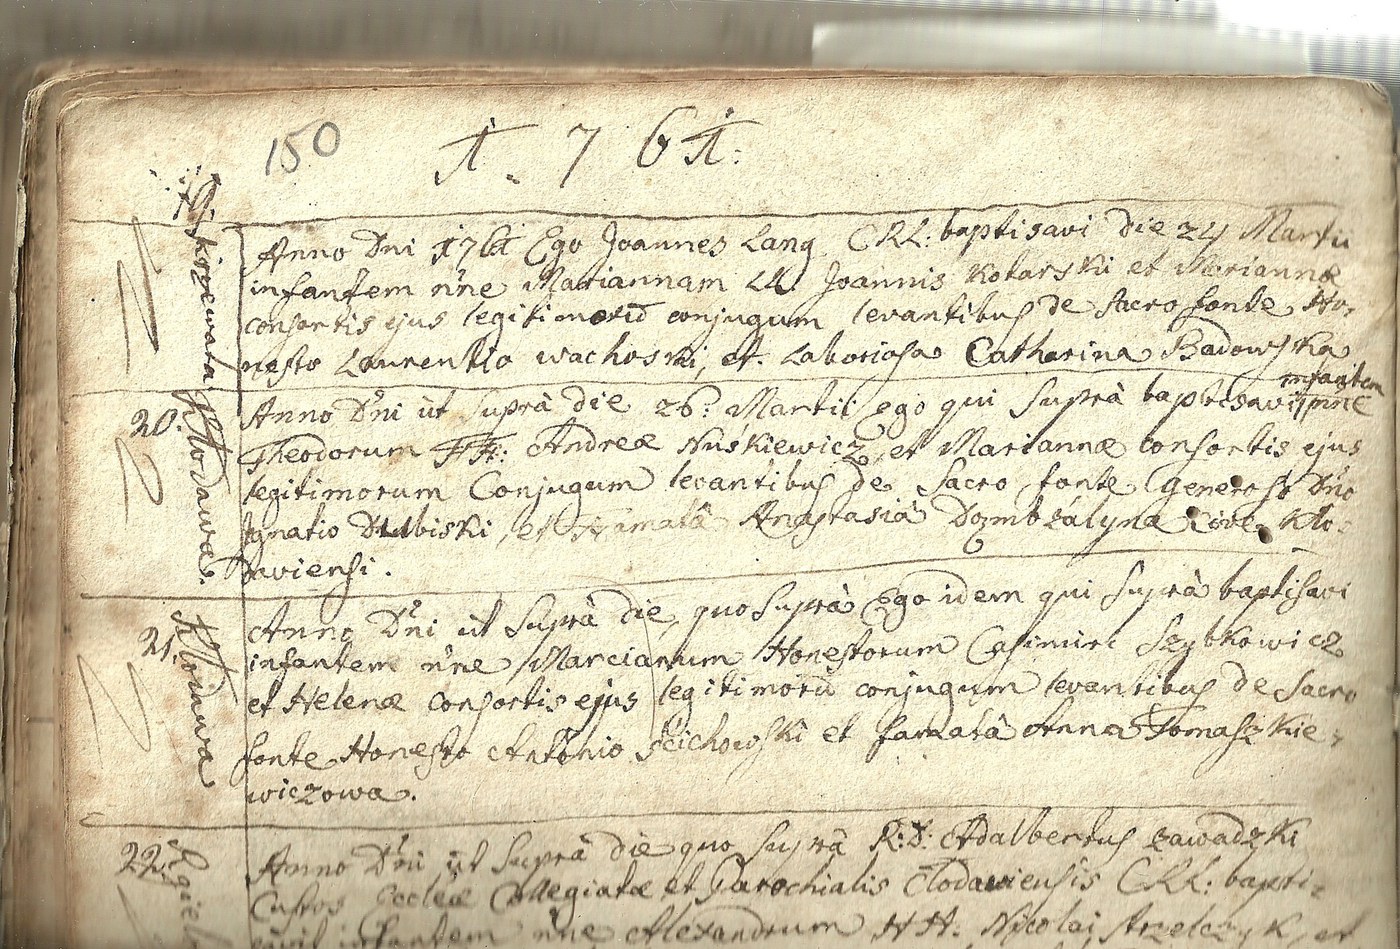 150
1. 7 6 1.
Anno Dni 1761 Ego Joannes Lang CRL: baptisavi die 24 Martii
infantem nne Mariannam LL Joannis Kotarski et Mariannæ
consortis ejus legitimorū conjugum levantibus de Sacro fonte Ho-
nesto Laurentio Wachoski, et Laboriosa Catharina Badowska
20. Kłodawa.
Anno Dni ut suprà die 26: Martii ego qui suprà baptisavi infantem nne
Theodorum FF: Andreæ Nuskiewicz, et Mariannæ consortis ejus
legitimorum Conjugum levantibus de Sacro fonte Generoso Dno
Ignatio Dubiski, et Famatâ Anastasiâ Dombzalyna Cive Kło-
daviensi.
21. Kłodawa
Anno Dni ut Suprà die, quo Suprà Ego idem qui Suprà baptisavi
infantem nne Marcianum Honestorum Casimiri Szybkowicz
et Helenæ consortis ejus legitimorū conjugum levantibus de Sacro
fonte Honesto Antonio et famatâ Anna Tomaszkie-
wiczowa.
22.
Anno Dni ut Suprà die quo Suprà R:D: Adalbertus Zawadzki
Custos Eccleæ Collegiatæ et Parochialis Clodaviensis CRL: bapti-
savit infantem nne Alexandrum HH: Nicolai et